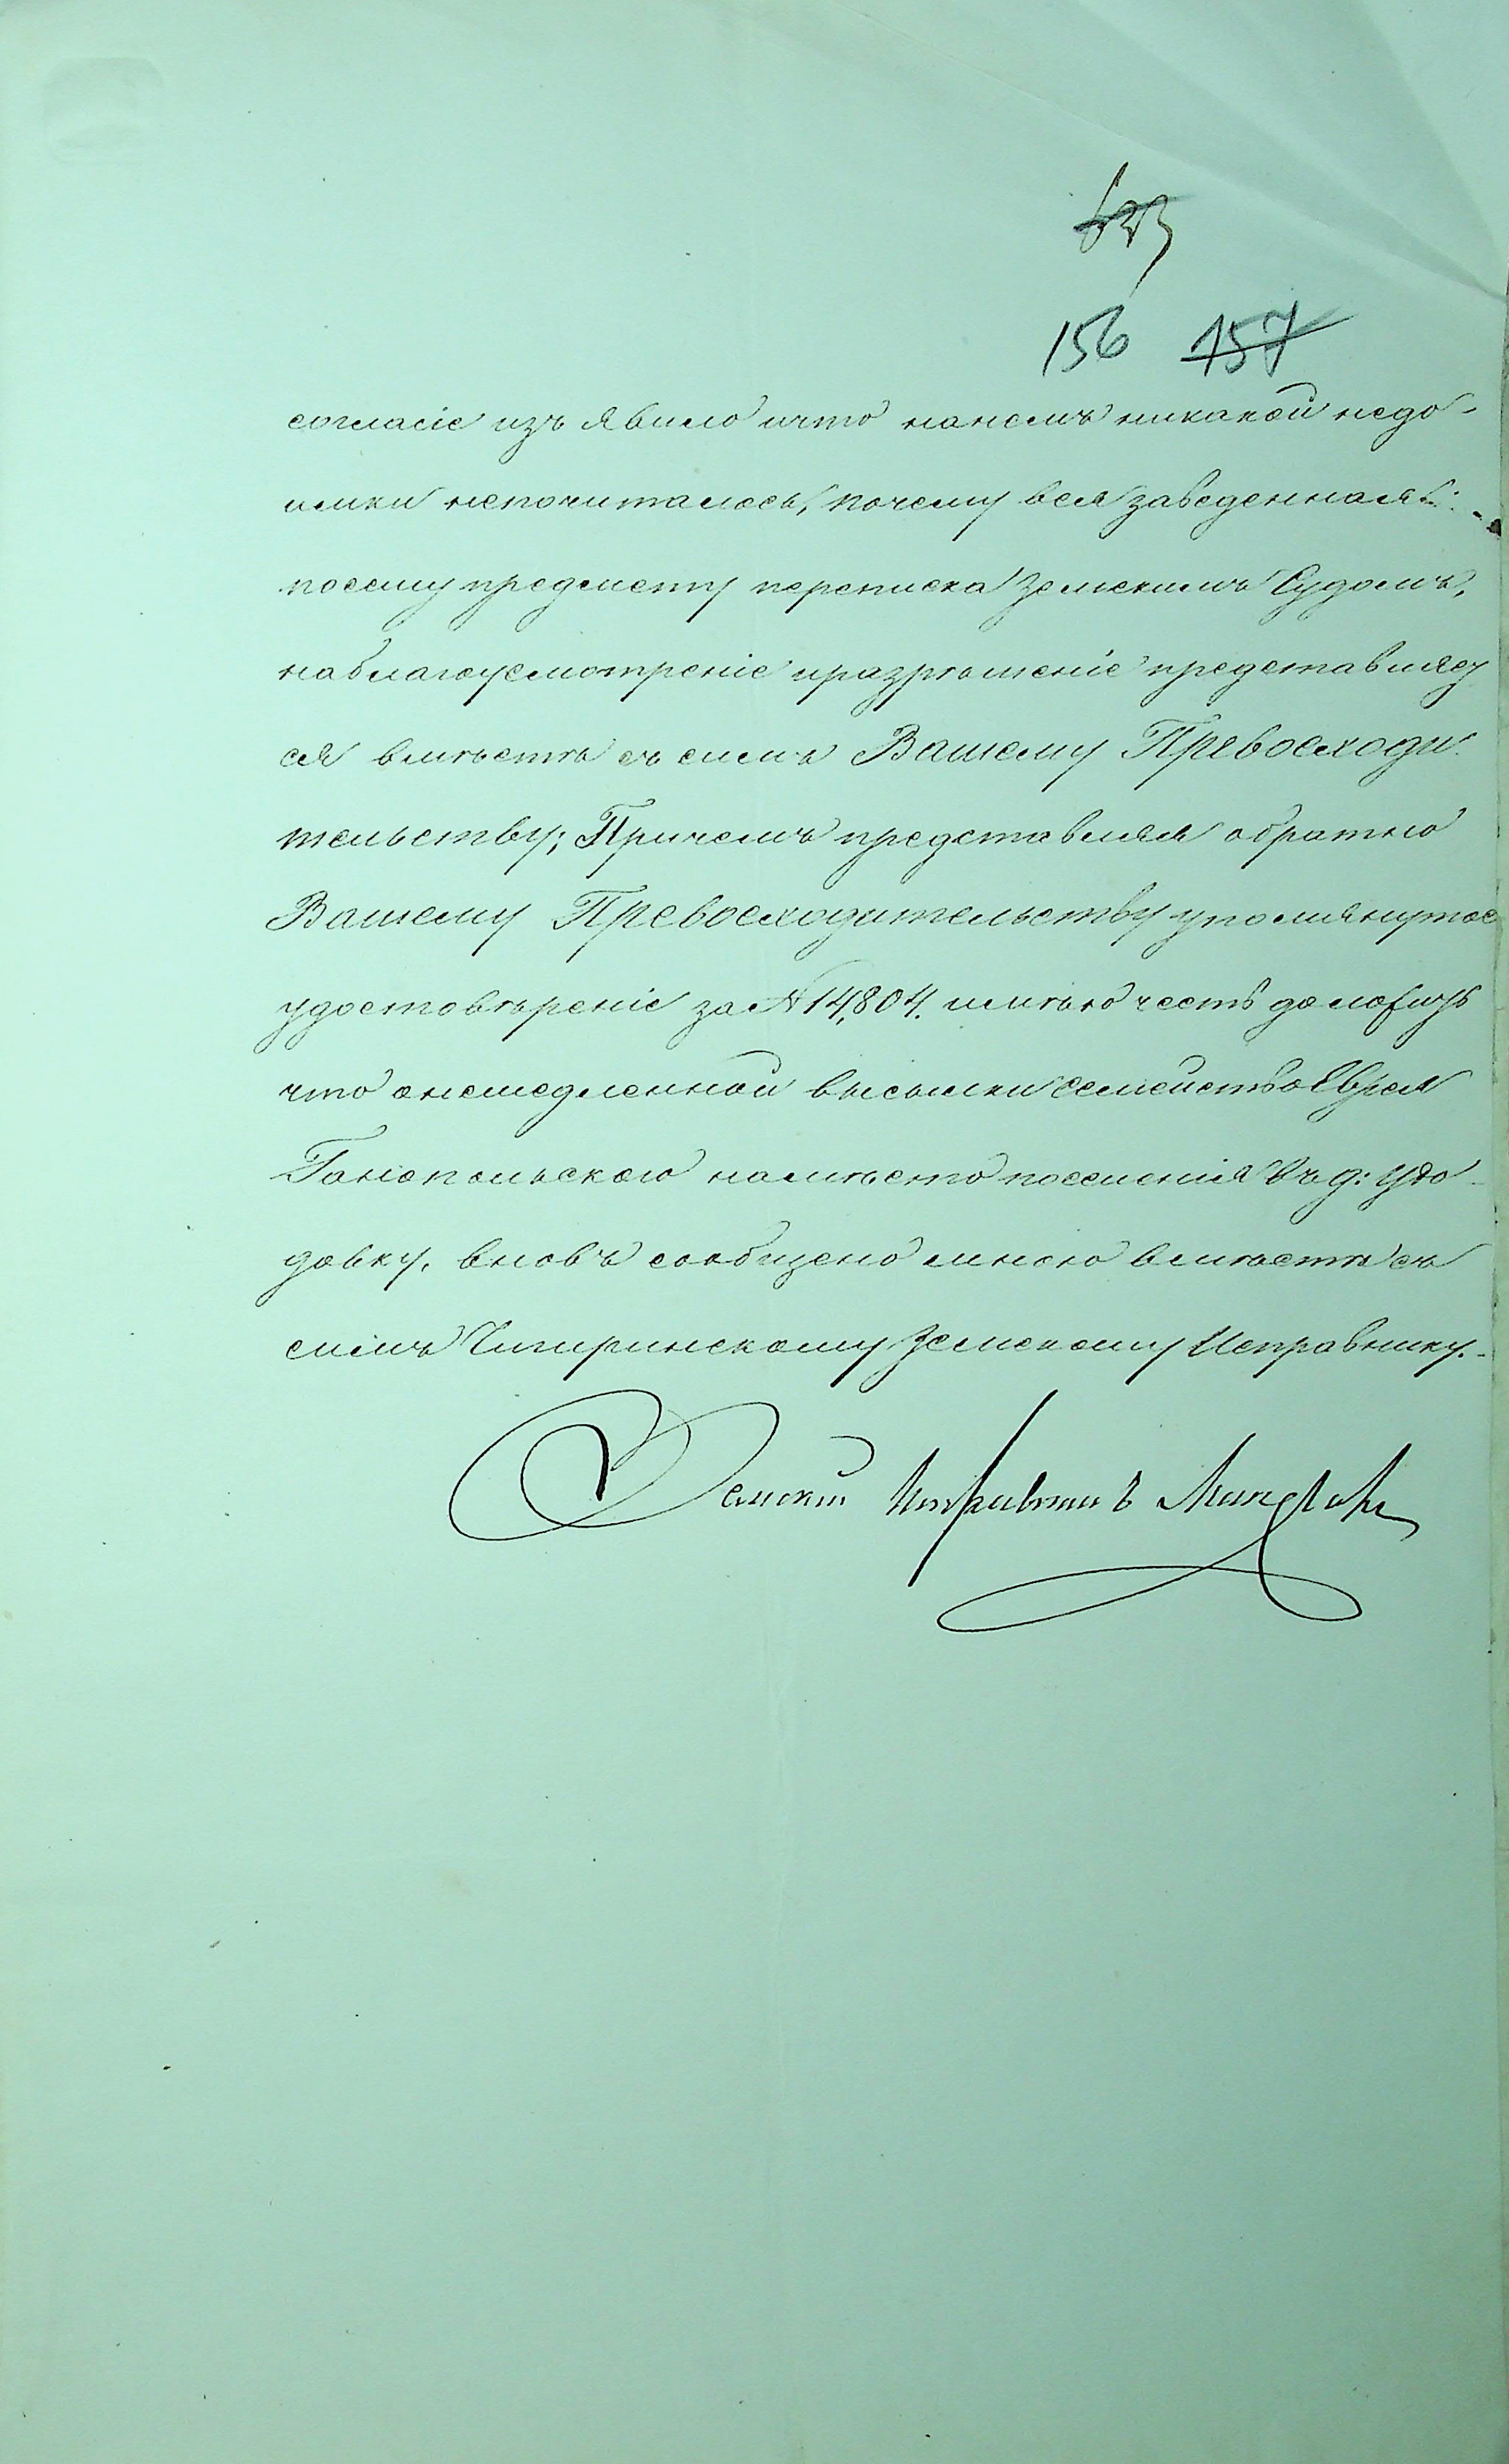 156 157
согласіе изъявило и что на немъ никакой недо-
имки непочиталось, почему вся заведенная
посему предмету переписка Земскимъ Судомъ,
на благоусмотреніе и разрѣшеніе представляет
ся вмѣстѣ съ симъ Вашему Превосходи-
тельству; Причемъ представляя обратно
Вашему Превосходительству упомянутое
удостовѣреніе за № 14,804. имѣю честь доложить
что о немедленной высылки семейство Еврея
Ганопольскаго на мѣсто поселенія въ д:
довку, вновь сообщено мною вмѣстѣ съ
симъ Чигиринскому Земскому Исправнику.-
Земскій Исправникъ